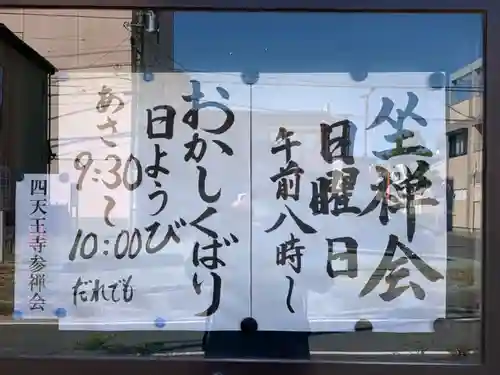 坐禅会
日曜日
午前八時〜
おかしくばり
日ようび
あさ
9:30〜
10:00
だれでも
四天王寺参禅会